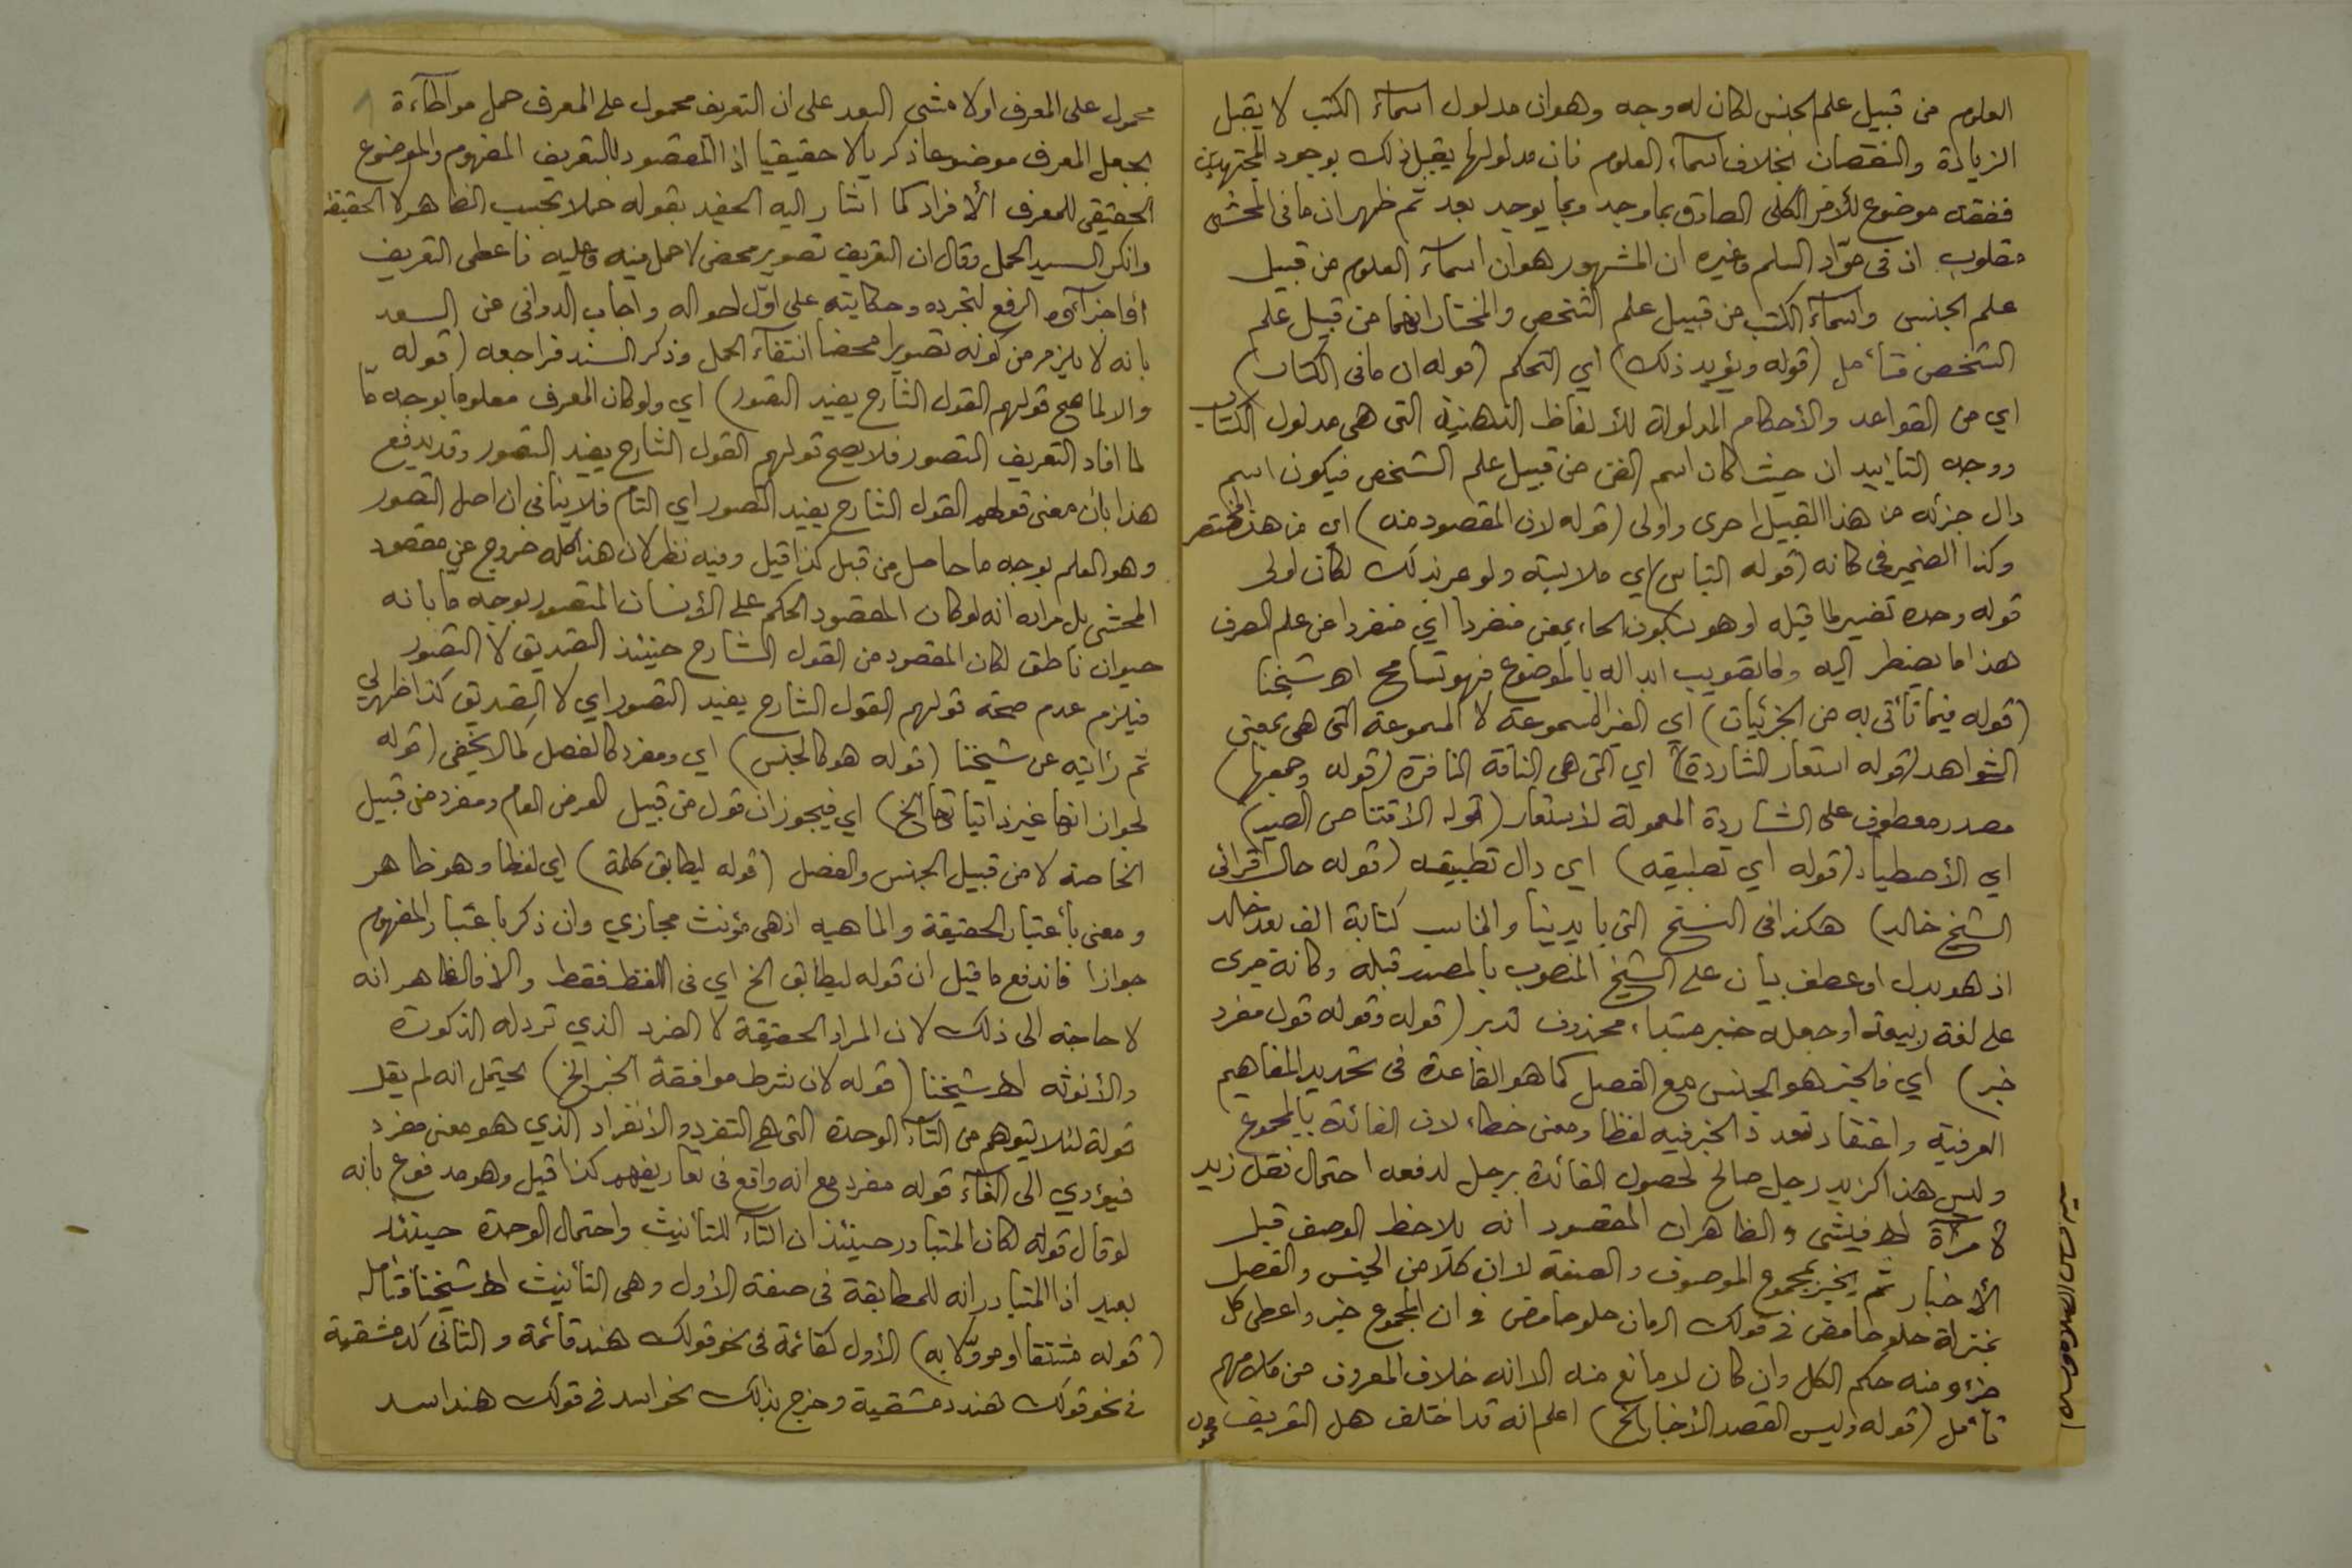 العلوم من قبيل علم الجنس لكان له وجه وهو ان مدلول اسماء الكتب لا يقبل
الزيادة والنقصان بخلاف اسماء العلوم فان مدلولها يقبل ذلك بوجود المجتهدين
ففقه موضوع للأمر الكلى الصادق بما وجد وبما يوجد بعد ثم ظهر ان ما فى المحشى
مقلوب اذ فى حوّاد السلم وغيره ان المشهور هو ان اسماء العلوم من قبيل
علم الجنس واسماء الكتب من قبيل علم الشخص والمختار انهما من قبيل علم
الشخص فتأمل (قوله ويؤيد ذلك) أي التحكم (قوله ان ما فى الكتاب)
اي من القواعد والأحكام المدلولة للألفاظ الذهنية التى هى مدلول الكتاب
ووجه التاييد ان حيث كان اسم الفن من قبيل علم الشخص فيكون اسم
دال جزئه من هذا القبيل احرى واولى (قوله لان المقصود منه) اي من هذا المختصر
وكذا الضمير فى كانه (قوله التباس) اي ملابسة ولو عبر بذلك لكان أولى
قوله وحده تفسير لما قبله اوهو بسكون الحاء بمعنى منفردا أي منفردا عن علم الصرف
هذا ما يضطر اليه واما تصويب ابداله بالموضوع فهو تسامح اهـ شيخنا
(قوله فيما تأتى به من الجزئيات) أي الغير المسموعة لا المسموعة التى هى بمعنى
الشواهد (قوله استعار الشاردة) اي التى هى الناقة النافرة (قوله وجمعها)
مصدر معطوف على الشاردة المعمولة لاستعار (قوله الاقتناص الصيد)
اي الأصطياد (قوله أي تطبيقه) اي دال تطبيقه (قوله حال اقرائى
الشيخ خالد) هكذا فى النسخ التى بايدينا والمناسب كتابة الف بعد خالد
اذ هو بدل او عطف بيان على الشيخ المنصوب بالمصدر قبله وكانه جرى
على لغة ربيعة او جعله خبر مبتداء محذوف تدبر (قوله وقوله قول مفرد
خبر) أي فالخبر هو الجنس مع الفصل كما هو القاعدة فى تحديد المفاهيم
العرفية واعتقاد تعدد الخبر فيه لفظا ومعنى خطاء لان الفائدة بالمجموع
وليس هذا كزيد رجل صالح لحصول الفائدة برجل لدفعه احتمال نقل زيد
لامرأة اهـ فيشى والظاهر ان المقصود انه يلاحظ الوصف قبل
الأخبار ثم يخبر بمجموع الموصوف والصفة لان كلا من الجنس والفصل
بمنزلة حلو حامض فى قولك الرمان حلو حامض فى ان المجموع خبر واعطى كل
جزء منه حكم الكل وان كان لا مانع منه الا انه خلاف المعروف من كلامهم
تأمل (قوله وليس القصد الأخبار الخ) اعلم انه قد اختلف هل التعريف
محمول
محمول على المعرف اولا مشى السعد على ان التعريف محمول على المعرف حمل مواطاءة
بجعل المعرف موضوعا ذكريا لا حقيقيا اذ المقصود بالتعريف المفهوم والموضوع
الحقيقى للمعرف الأفراد كما اشار اليه الحفيد بقوله حملا بحسب الظاهر لا الحقيقة
وانكر السيد الحمل وقال ان التعريف تصوير محض لا حمل فيه وعليه فاعطى التعريف
الرفع لتجرده وحكايته على اوّل احواله واجاب الدوانى عن السعد
بانه لا يلزم من كونه تصويرا محضا انتفاء الحمل وذكر السند فراجعه (قوله
والا لما صح قولهم القول الشارح يفيد التصور) اي ولو كان المعرف معلوما بوجه مّا
لما افاد التعريف التصور فلا يصح قولهم القول الشارح يفيد التصور وقد يدفع
هذا بأن معنى قولهم القول الشارح يفيد التصور اي التام فلا ينافى ان اصل التصور
وهو العلم بوجه ما حاصل من قبل كذا قيل وفيه نظر لان هذا كله خروج عن مقصود
المحشى بل مراده انه لو كان المقصود الحكم على الأنسان المتصور بوجه ما بانه
حيوان ناطق لكان المقصود من القول الشارح حينئذ التصديق لا التصور
فيلزم عدم صحة قولهم القول الشارح يفيد التصور اي لا التصديق كذا ظهر لي
ثم رأيته عن شيخنا (قوله هو كالجنس) اي ومفرد كالفصل كما لا يخفى (قوله
لجواز انها غير ذاتياتها الخ) اي فيجوز ان قول من قبيل العرض العام ومفرد من قبيل
الخاصة لا من قبيل الجنس والفصل (قوله ليطابق كلمة) اي لفظا وهو ظاهر
ومعنى بأعتبار الحقيقة والماهيه اذ هى مؤنث مجازي وان ذكر باعتبار المفهوم
جوازا فاندفع ما قيل ان قوله ليطابق الخ اي فى اللفظ فقط والا فالظاهر انه
لا حاجة الى ذلك لان المراد الحقيقة لا الفرد الذي ترد له الذكورة
والأنوثه اهـ شيخنا (قوله لان شرط موافقة الخبر الخ) يحتمل انه لم يقل
قولة لئلا يتوهم من التاء الوحدة التى هى التفرد والانفراد الذي هو معنى مفرد
فيؤدي الى الغاء قوله مفرد مع انه واقع فى تعاريفهم كذا قيل وهو مدفوع بانه
لو قال قولة لكان المتبادر حينئذ ان التاء للتأنيث واحتمال الوحدة حينئذ
بعيد اذ المتبادر انه للمطابقة فى صفة الأول وهى التأنيث اهـ شيخنا فتأمله
(قوله مشتقا او موؤّلا به) الأول كقائمة فى نحو قولك هند قائمة والثانى كدمشقية
فى نحو قولك هند دمشقية وخرج بذلك نحو اسد فى قولك هند اسد